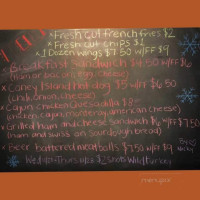 * Fresh cut french fries $2
* Fresh cut chips $2
* 1 Dozen Wings $7.50 w/FF $9
* Breakfast Sandwich $4.50 w/FF $6
(Ham or bacon, egg, cheese)
* Coney Island hot dog $5 w/FF $6.50
(chili, onion, cheese)
* Cajun Chicken Quesadilla $8
(chicken, cajun, monterey, american cheese)
* Grilled ham and cheese Sandwich $6 w/FF $7.50
(Ham and swiss on sourdough bread)
* Beer battered meatballs $7.50 w/FF $9
Wed + Thurs Nite $2 shots Wild Turkey